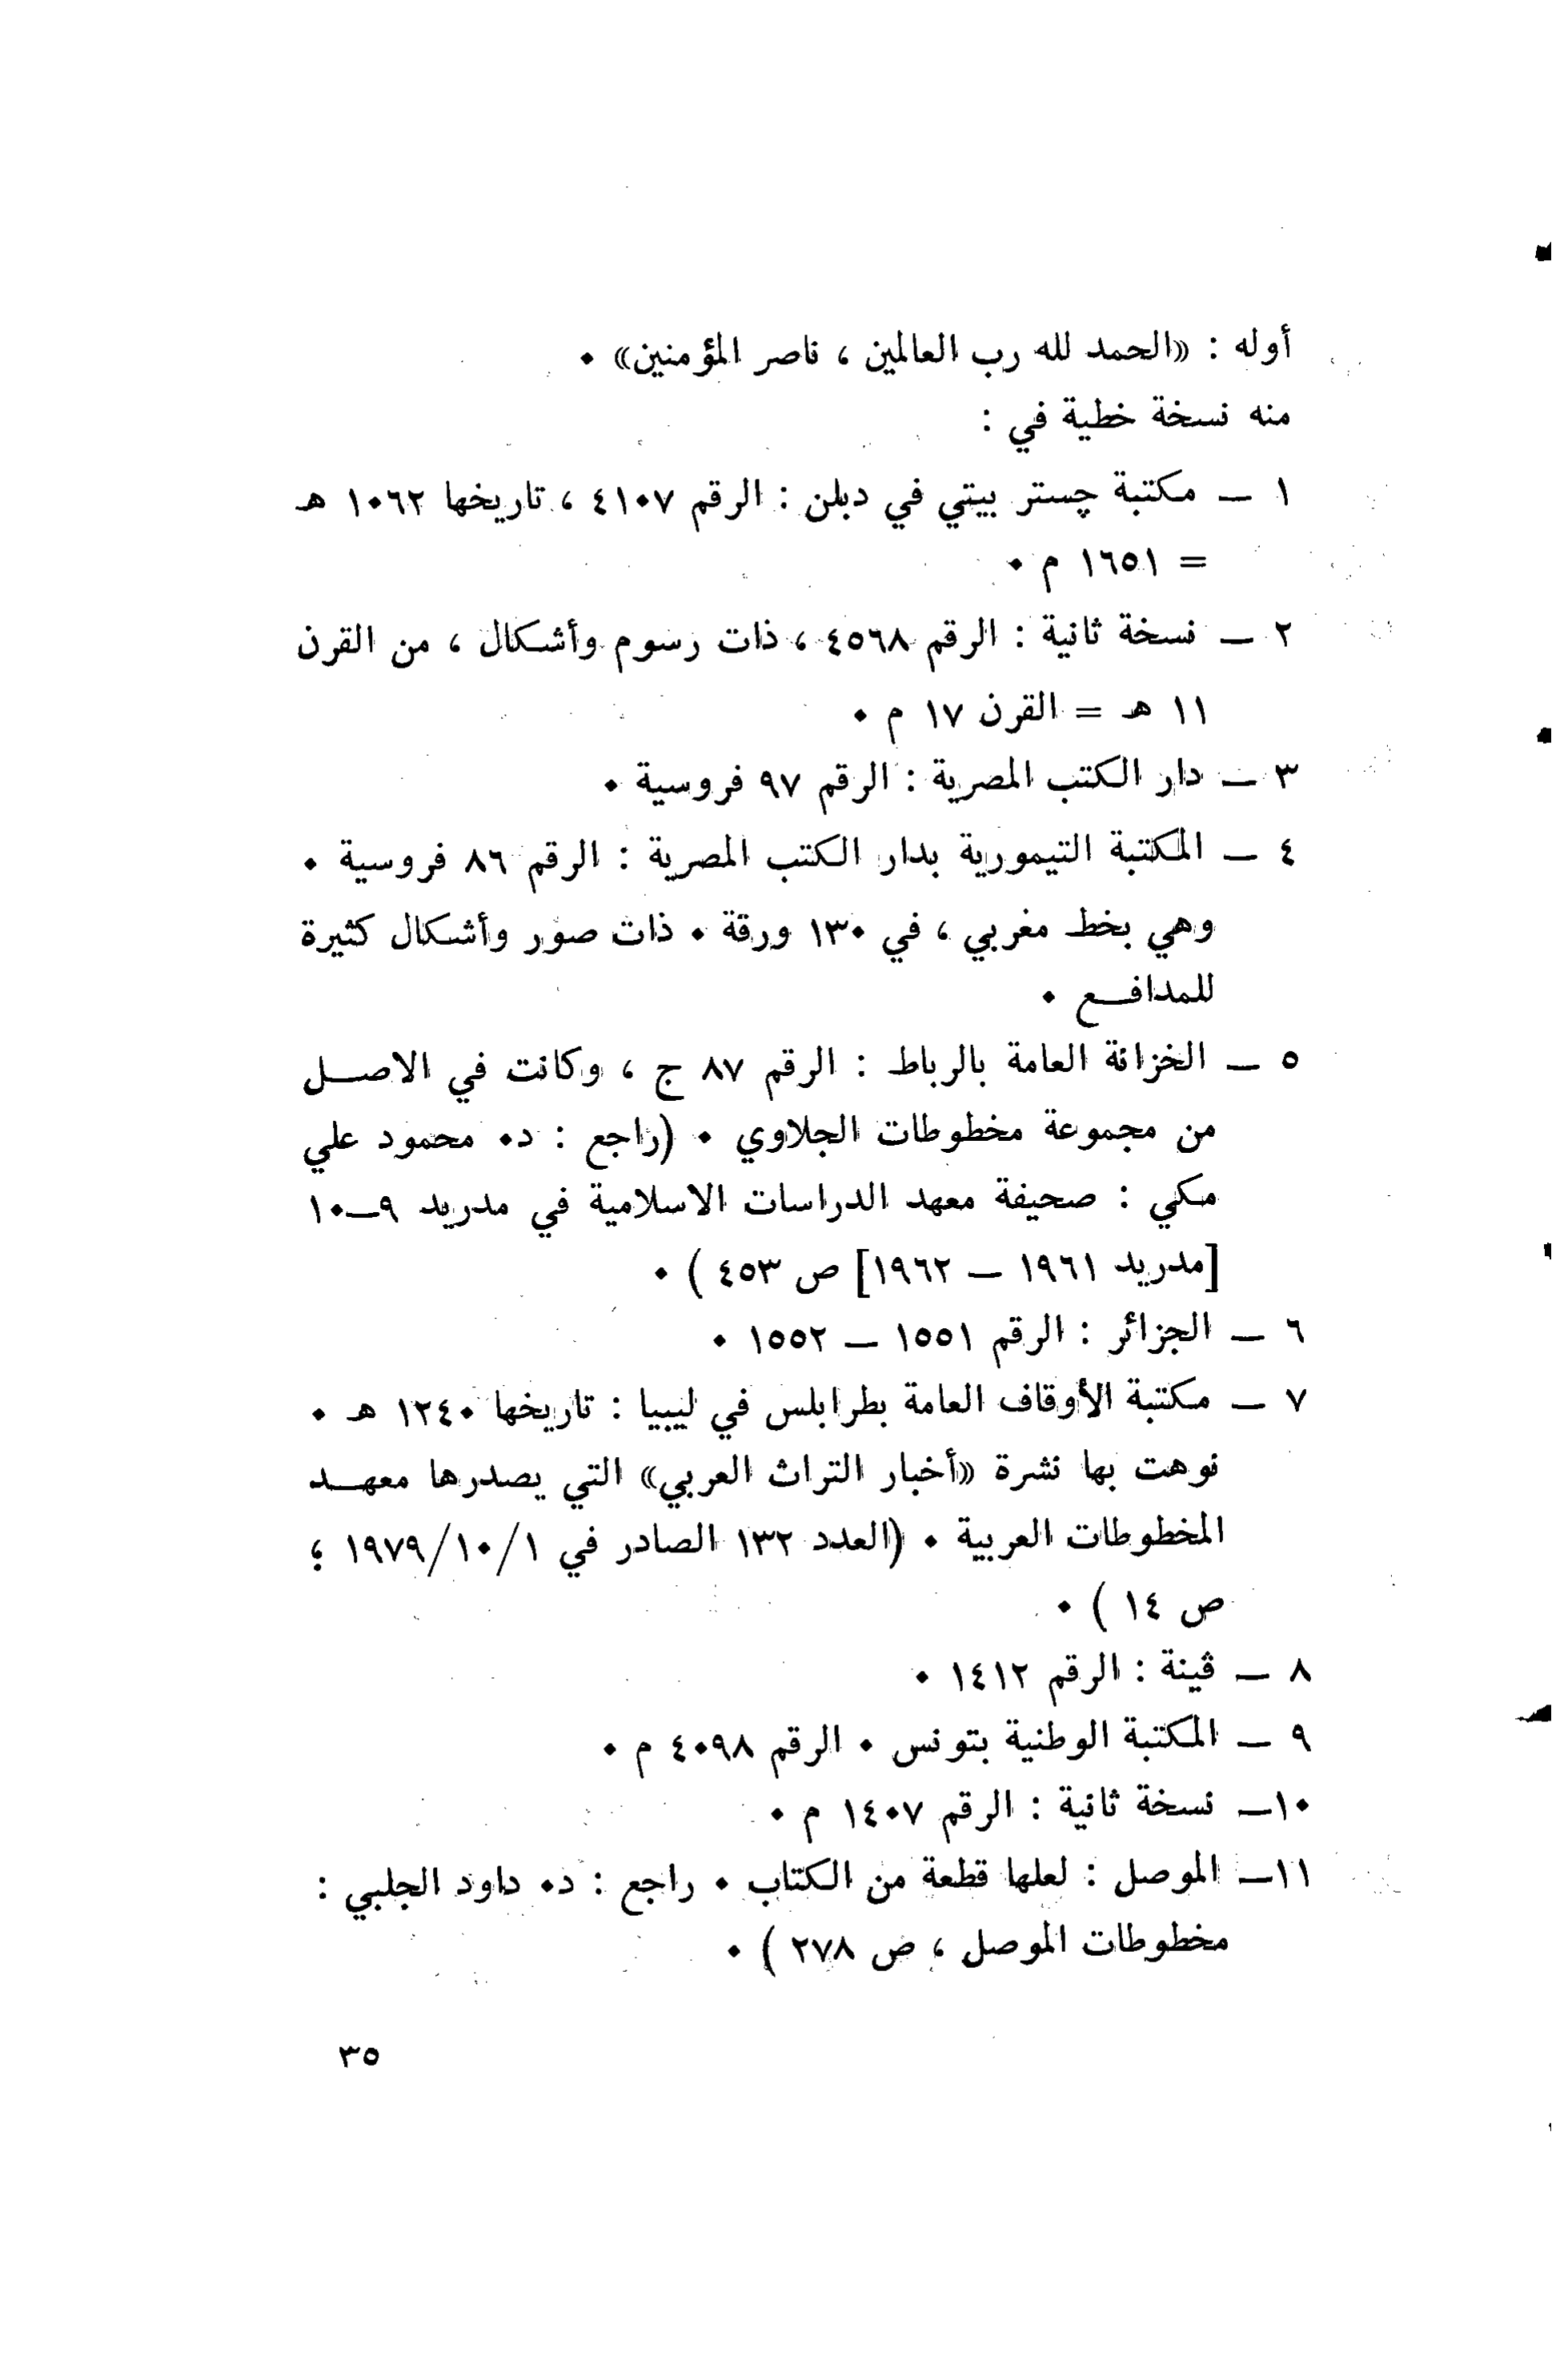 أوله : «الحمد لله رب العالمين ، ناصر المؤمنين» .
منه نسخة خطية في :
١ – مكتبة چستر بيتي في دبلن : الرقم ٤١٠٧ ، تاريخها ١٠٦٢ هـ
= ١٦٥١ م .
٢ – نسخة ثانية : الرقم ٤٥٦٨ ، ذات رسوم وأشكال ، من القرن
١١ هـ = القرن ١٧ م .
٣ – دار الكتب المصرية : الرقم ٩٧ فروسية .
٤ – المكتبة التيمورية بدار الكتب المصرية : الرقم ٨٦ فروسية .
وهي بخط مغربي ، في ١٣٠ ورقة . ذات صور وأشكال كثيرة
للمدافـــع .
٥ – الخزانة العامة بالرباط : الرقم ٨٧ ج ، وكانت في الاصــل
من مجموعة مخطوطات الجلاوي . (راجع : د. محمود علي
مكي : صحيفة معهد الدراسات الاسلامية في مدريد ٩–١٠
[مدريد ١٩٦١ – ١٩٦٢] ص ٤٥٣ ) .
٦ – الجزائر : الرقم ١٥٥١ – ١٥٥٢ .
٧ – مكتبة الأوقاف العامة بطرابلس في ليبيا : تاريخها ١٢٤٠ هـ .
نوهت بها نشرة «أخبار التراث العربي» التي يصدرها معهــد
المخطوطات العربية . (العدد ١٣٢ الصادر في ١/١٠/١٩٧٩ ؛
ص ١٤ ) .
٨ – ڤينة : الرقم ١٤١٢ .
٩ – المكتبة الوطنية بتونس . الرقم ٤٠٩٨ م .
١٠– نسخة ثانية : الرقم ١٤٠٧ م .
١١– الموصل : لعلها قطعة من الكتاب . راجع : د. داود الجلبي :
مخطوطات الموصل ، ص ٢٧٨ ) .
٣٥